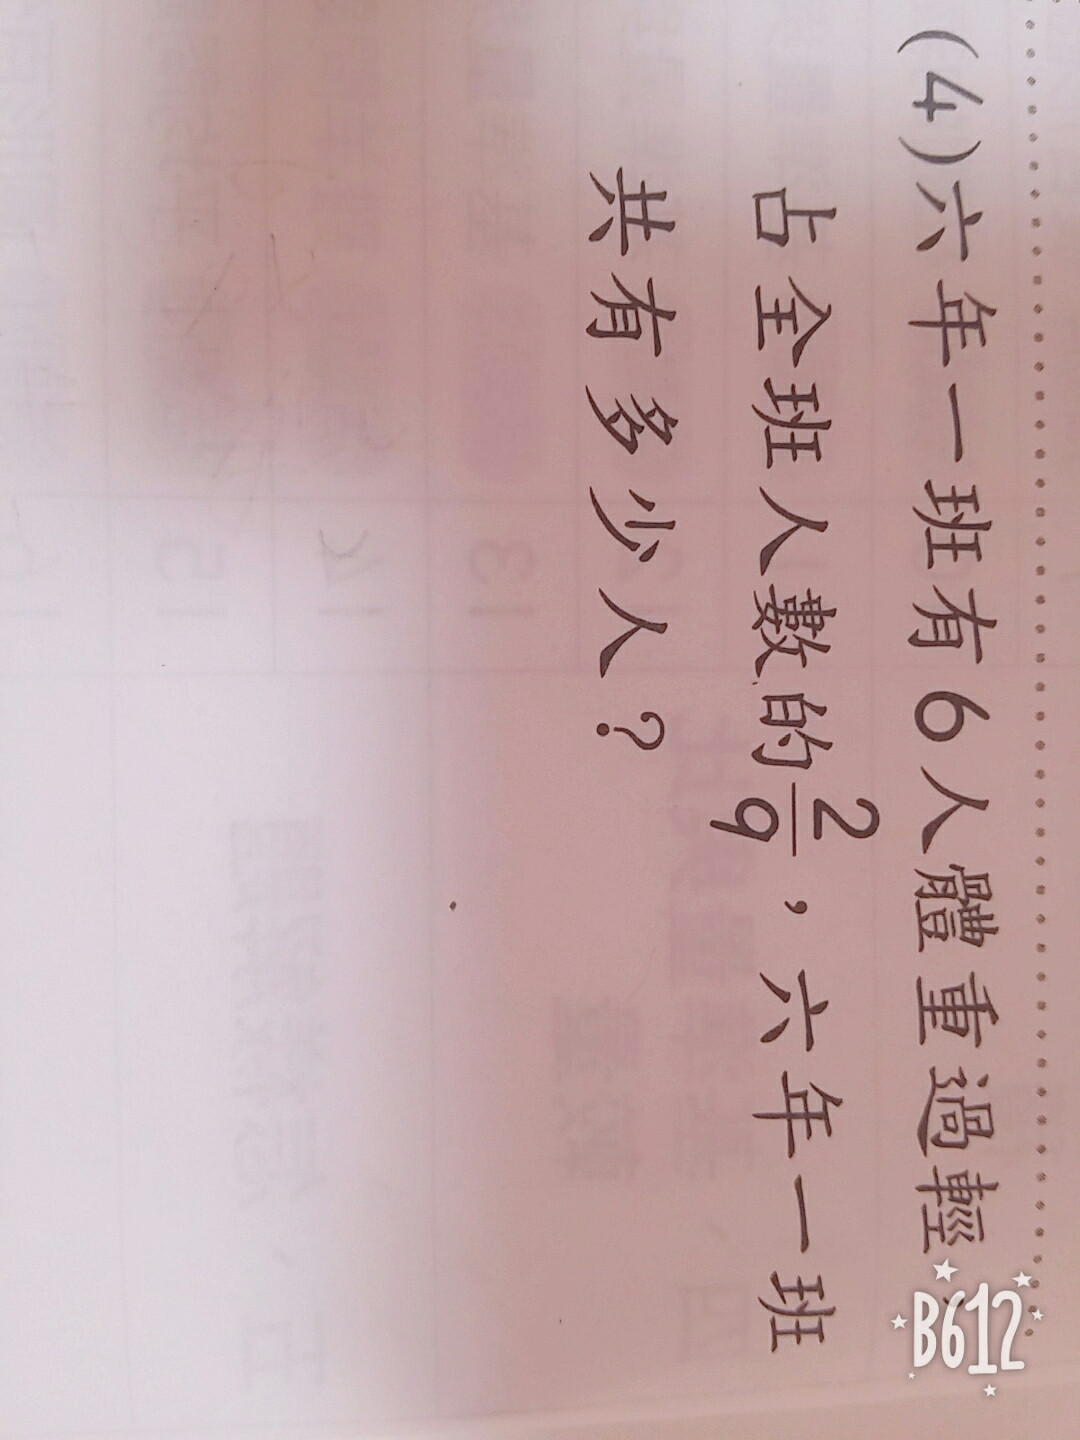 (4)六年一班有6人體重過輕,
占全班人數的2/9,六年一班
共有多少人?
B612